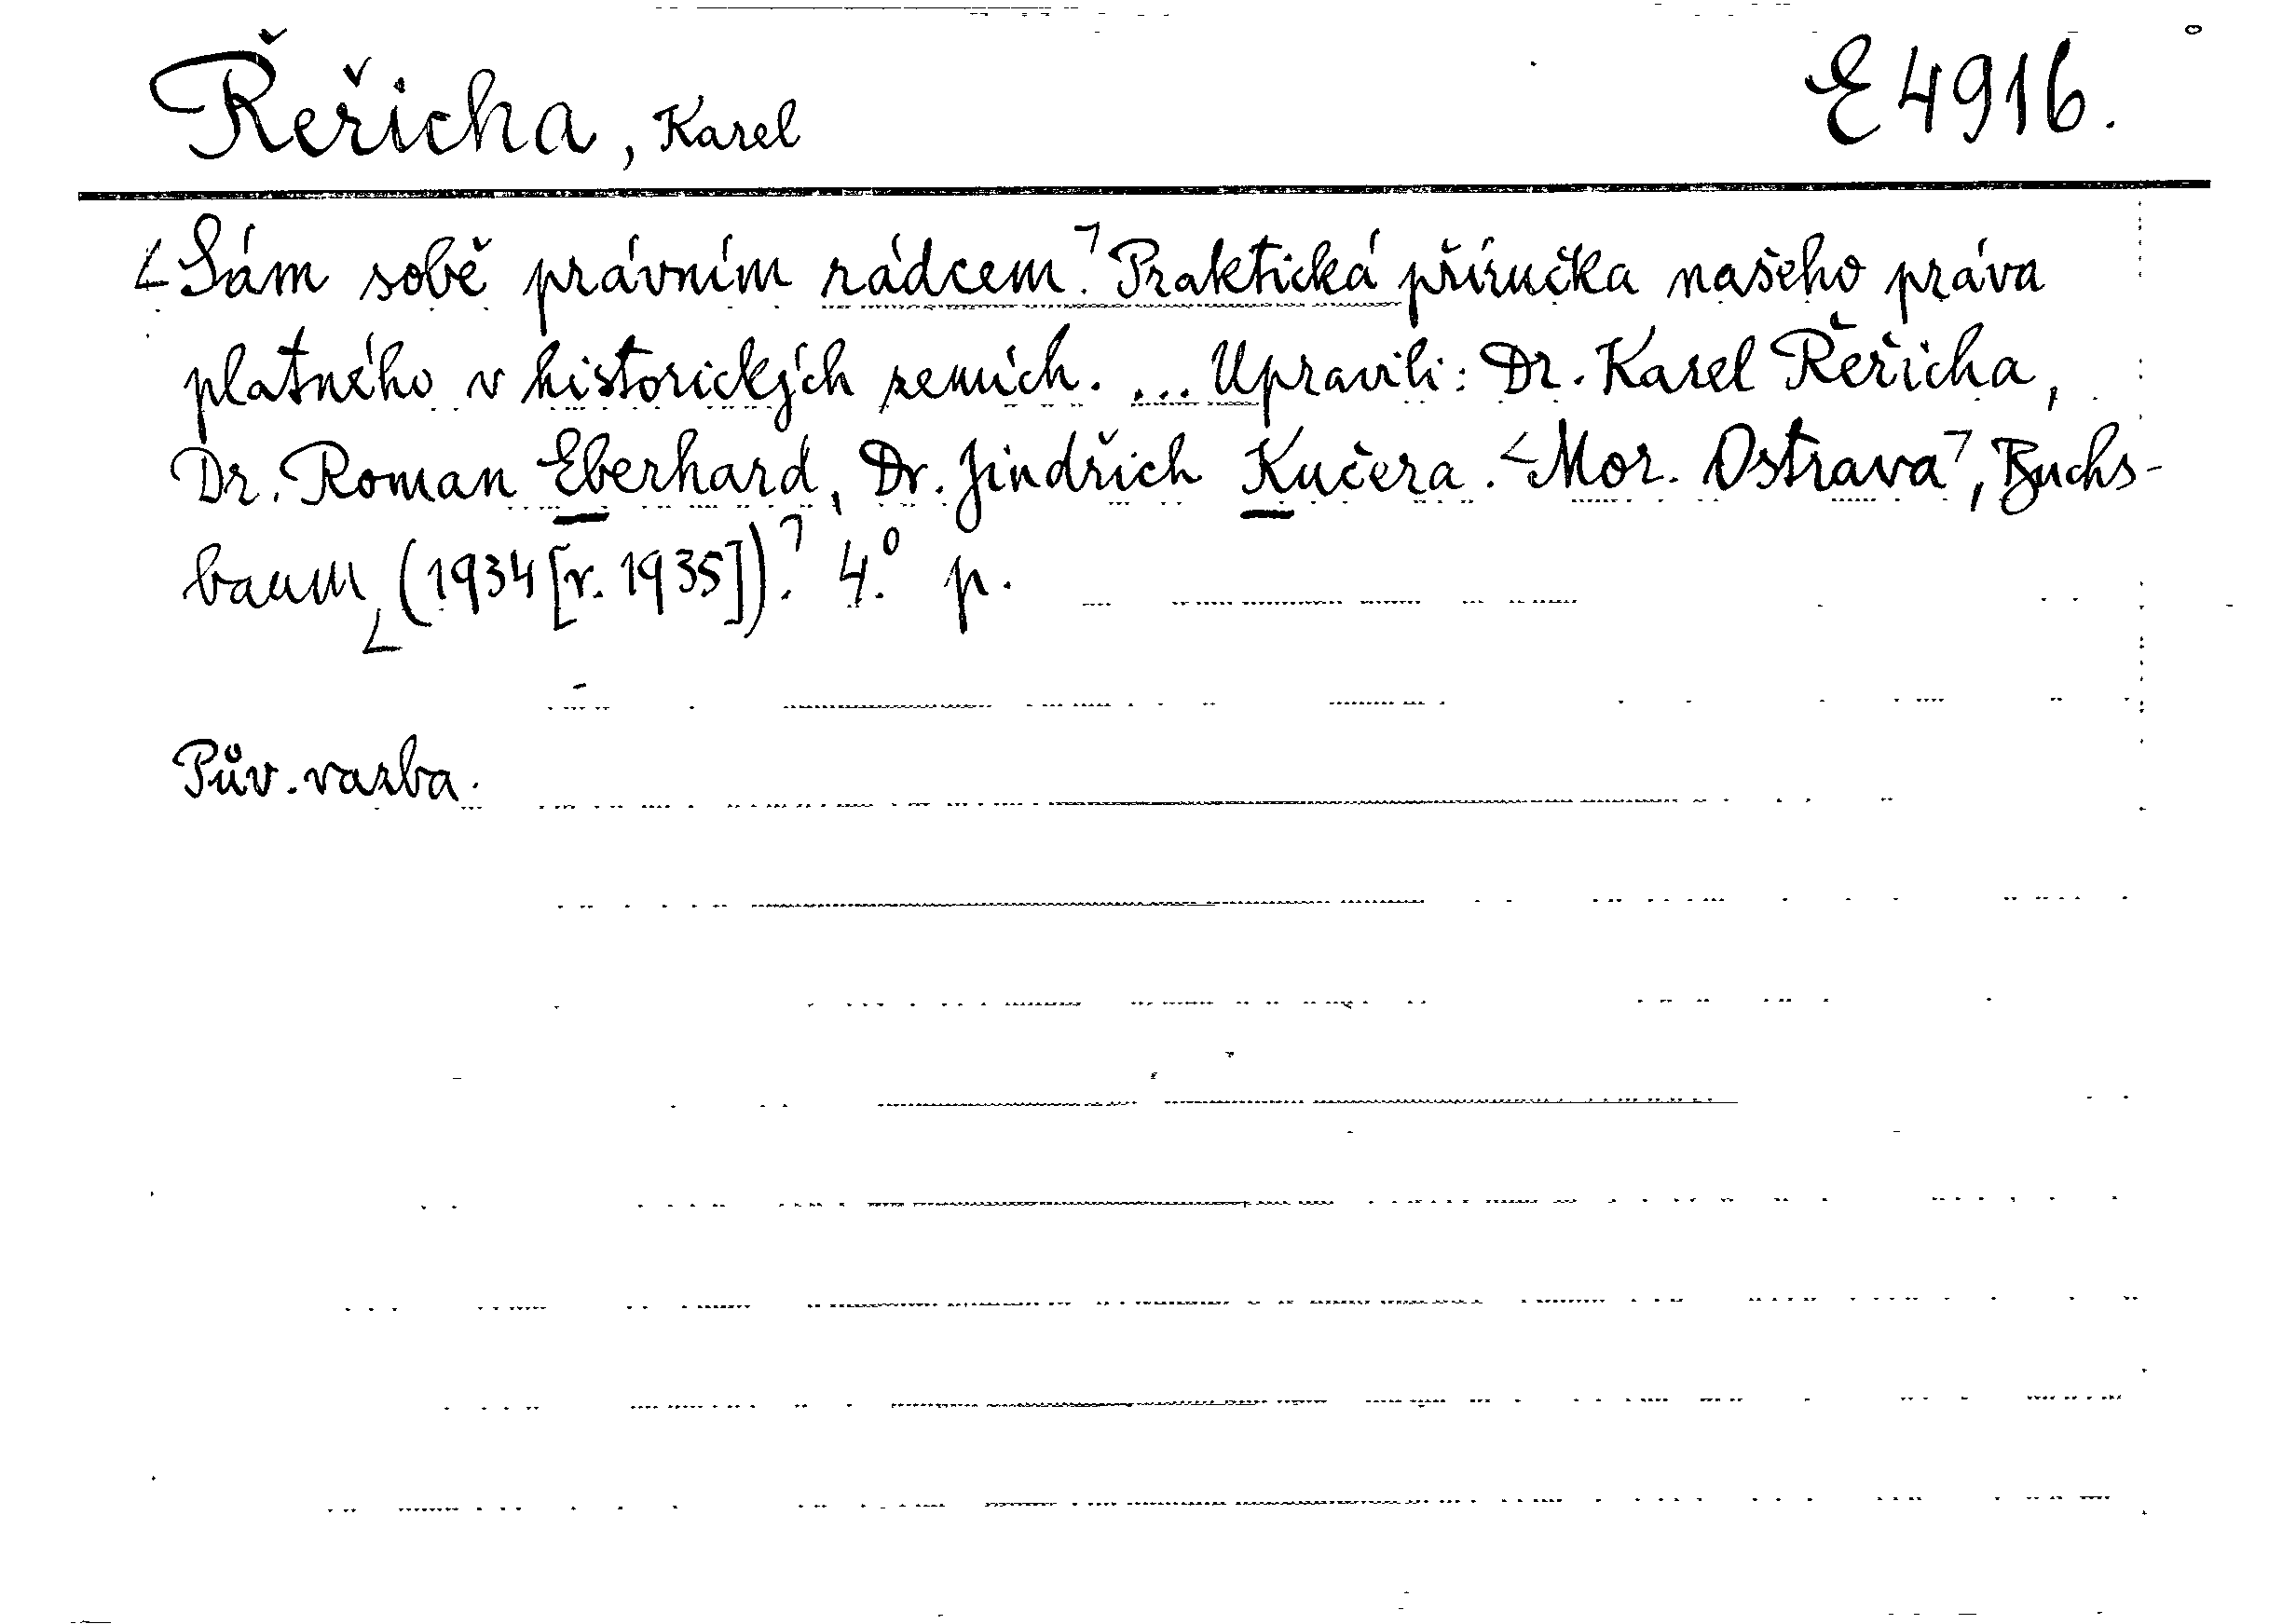 Řeřicha, Karel
E 4916.
∠Sám sobě právním rádcem.⌝ Praktická příručka našeho práva
platného v historických zemích. ... Upravili: Dr. Karel Řeřicha,
Dr. Roman Eberhard, Dr. Jindřich Kučera. ∠Mor. Ostrava⌝, Buchs-
baum ∠(1934 [r. 1935]).⌝ 4.° p.
Pův. vazba.